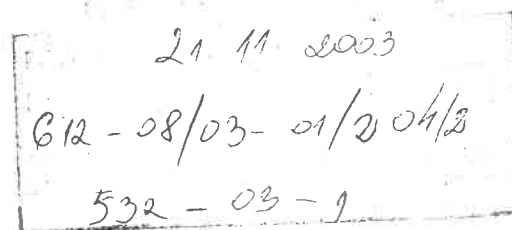 21 11 2003
612-08/03-01/204/2
532-03-1